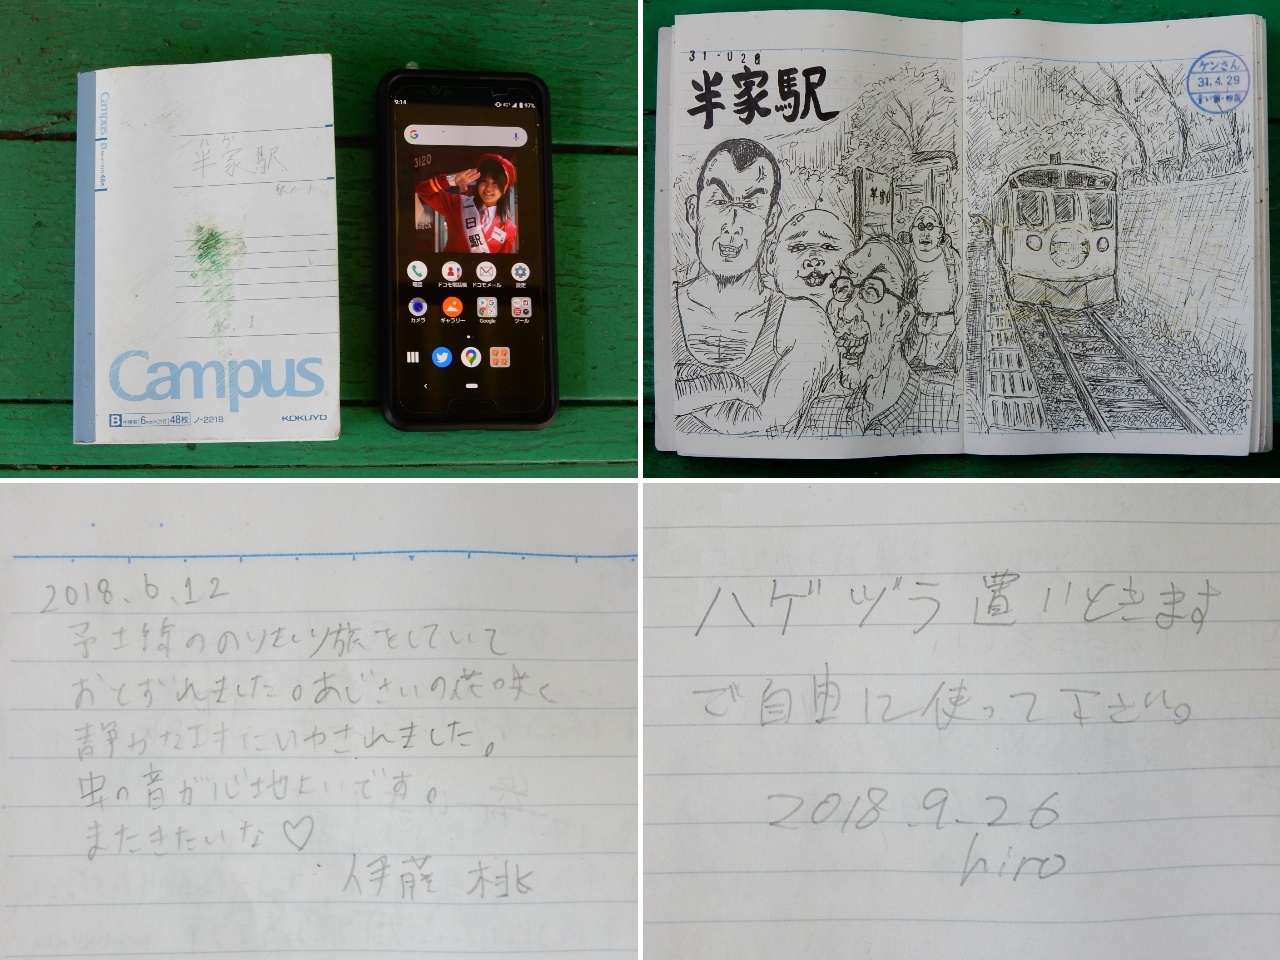 Campus
ハゲ
半家駅
No. 1
Campus
B 6mm 48枚 ノ-221B
KOKUYO
9:14
97%
3120
一日駅
電話
ドコモ電話帳
ドコモメール
設定
カメラ
ギャラリー
Google
ツール
31-028
半家駅
ケンさん
31.4.29
半家
2018.6.12
予土線ののりたり旅をしていて
おとずれました。あじさいの花咲く
静かな駅にいやされました。
虫の音が心地よいです。
またきたいな♡
伊藤 桃
ハゲヅラ置いときます
ご自由に使って下さい。
2018.9.26
hiro